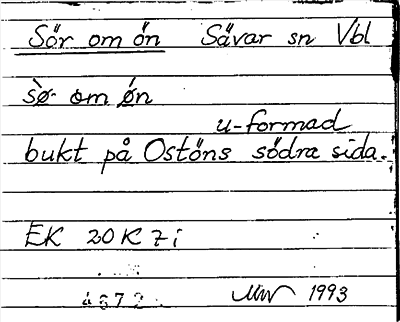 Sör om ön Sävar sn Vbl
sø̀r om øn
u-formad
bukt på Ostöns södra sida.
EK 20K 7i
4672
1993